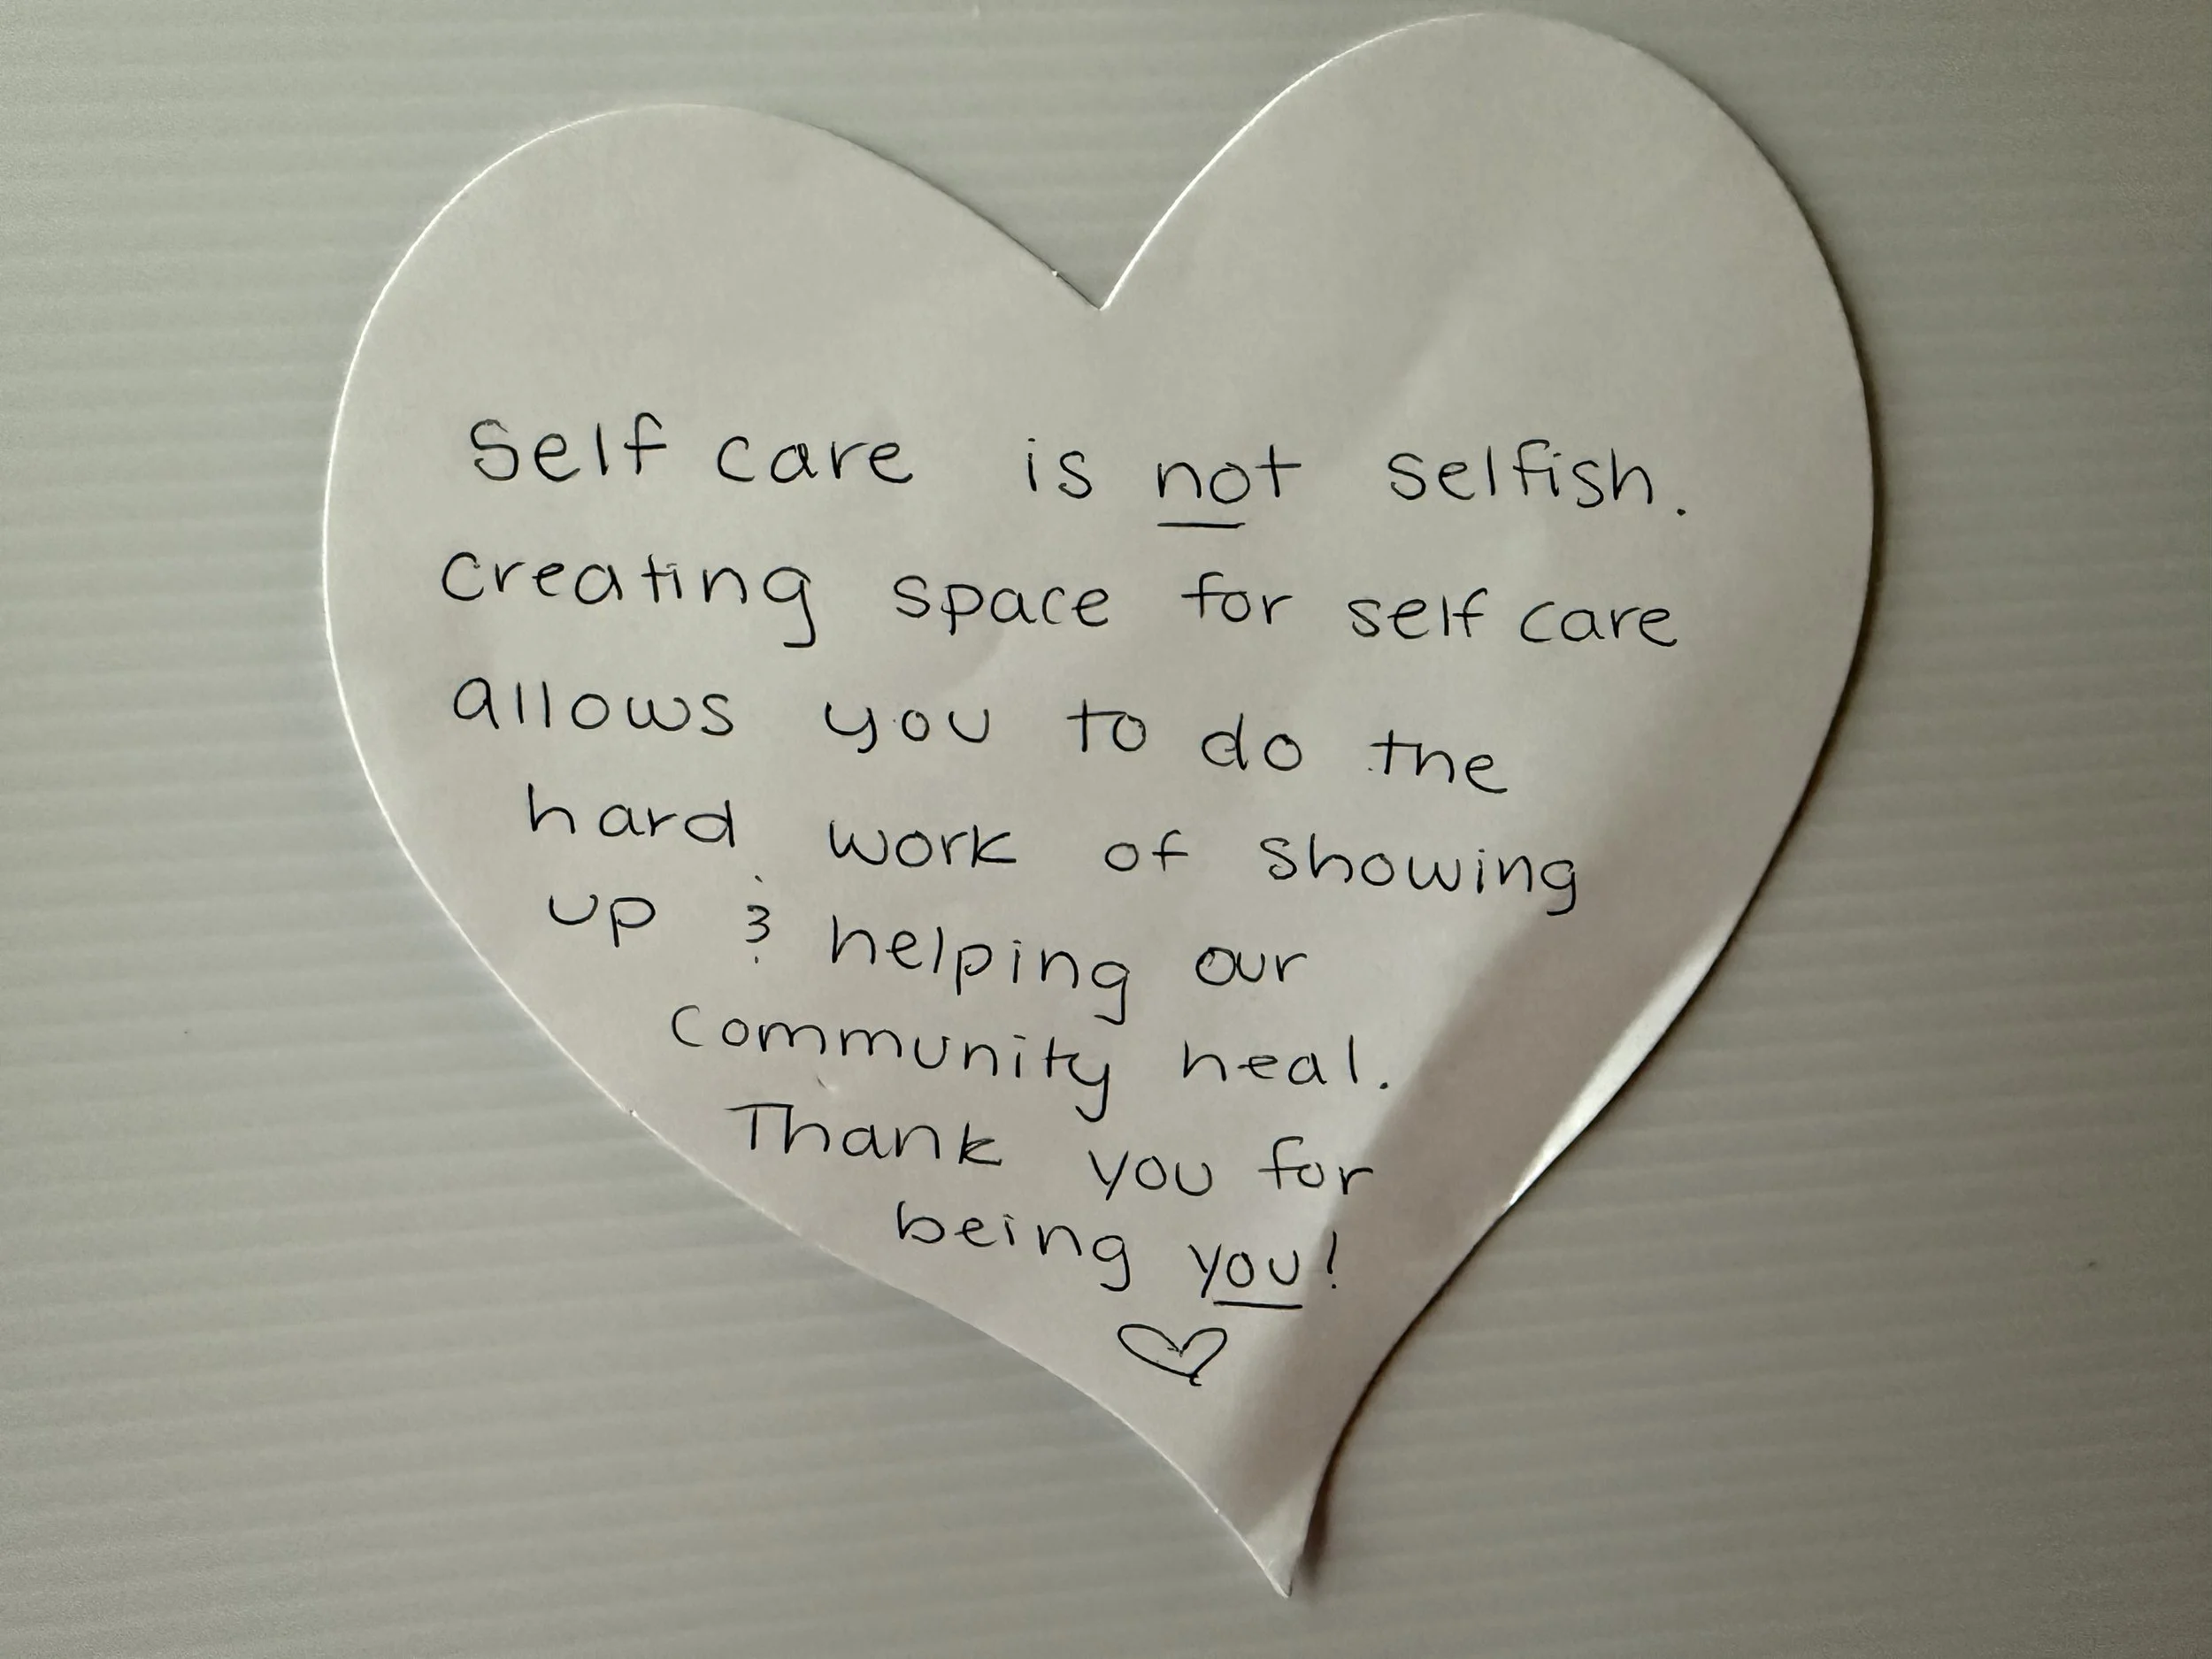 Self care is not selfish.
Creating space for self care
allows you to do the
hard work of showing
up & helping our
community heal.
Thank you for
being you!